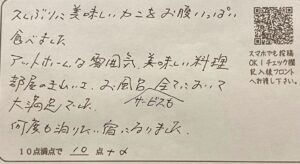 久しぶりに美味しいカニをお腹いっぱい
食べました
アットホームな雰囲気、美味しい料理
部屋のきれいさ、お風呂 全てにおいて
サービスも
大満足でした。
何度も泊りたい宿になりました。
10点満点で 10 点 +α
スマホでも投稿
OK！チェック欄
記入後フロント
へお渡し下さい。